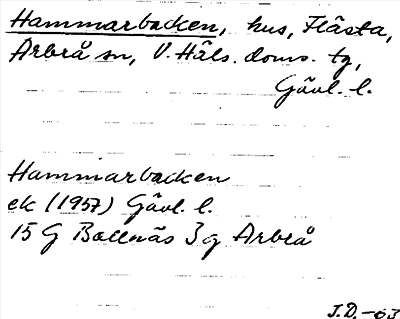 Hammarbacken, hus, Flästa,
Arbrå sn, V. Häls. doms. tg,
Gävl. l.
Hammarbacken
ek (1957) Gävl. l.
15 G Bollnäs 3 g Arbrå
J.D.-63